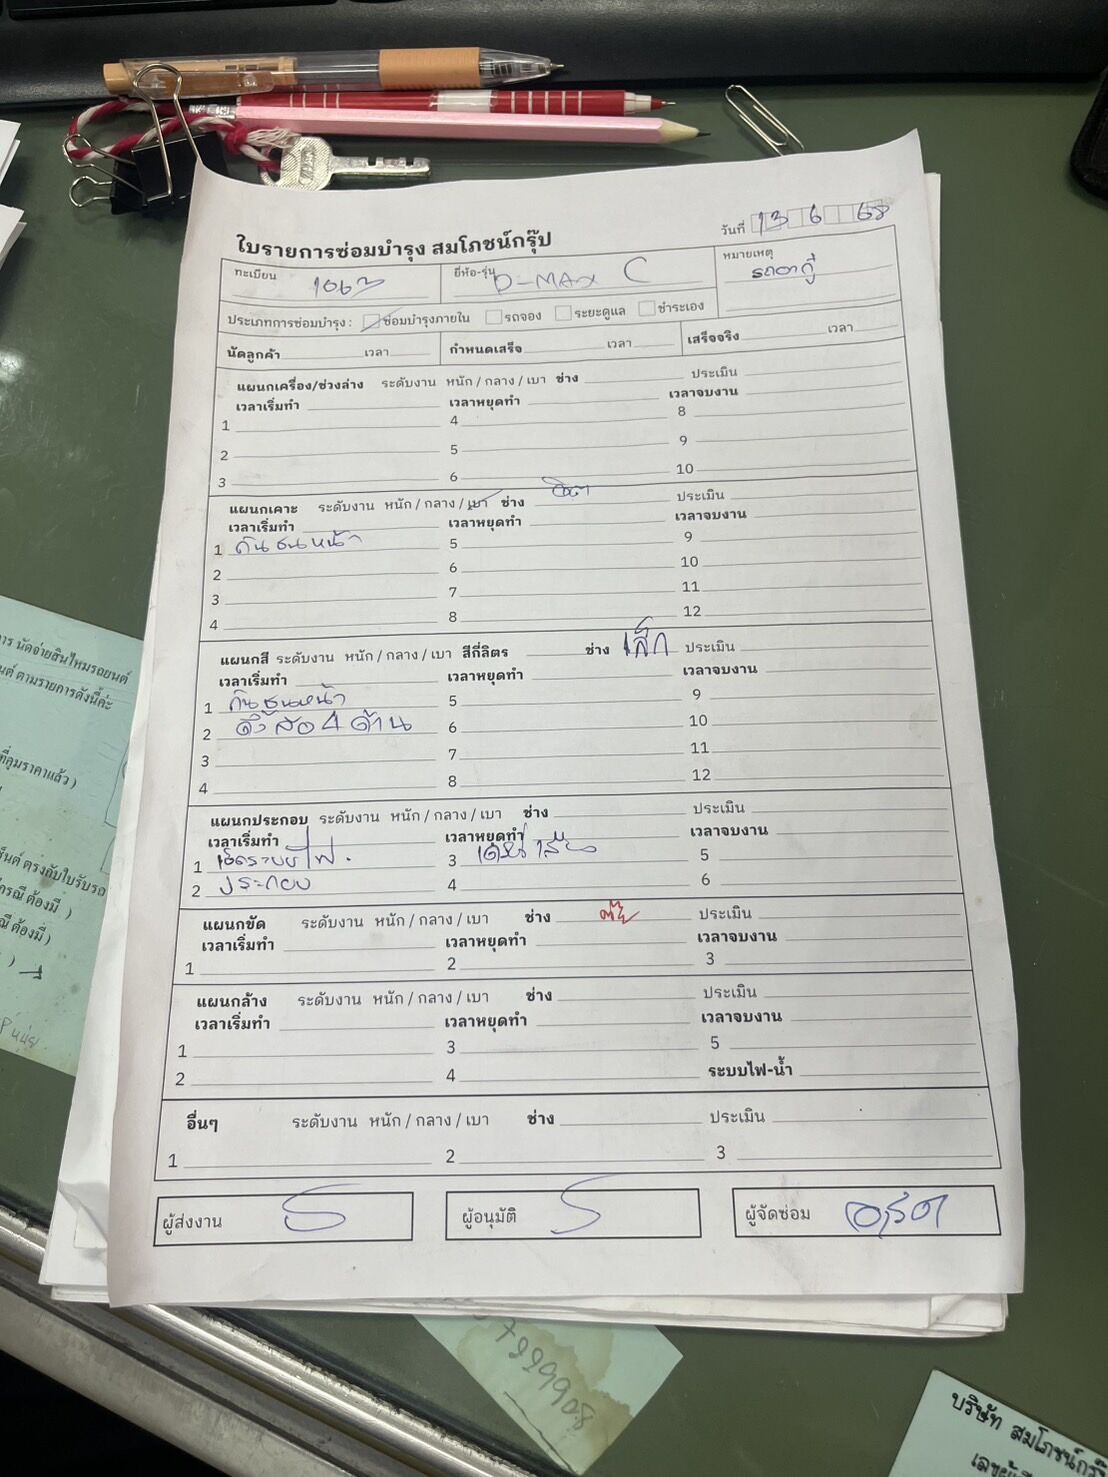 วันที่ 13 6 68
ใบรายการซ่อมบำรุง สมโภชน์กรุ๊ป
ทะเบียน 1063 ยี่ห้อ-รุ่น D-MAX C หมายเหตุ
ประเภทการซ่อมบำรุง : ซ่อมบำรุงภายใน รถจอง ระยะดูแล ชำระเอง
นัดลูกค้า เวลา กำหนดเสร็จ เวลา เสร็จจริง เวลา
แผนกเครื่อง/ช่วงล่าง ระดับงาน หนัก / กลาง / เบา ช่าง ประเมิน
เวลาเริ่มทำ เวลาหยุดทำ เวลาจบงาน
1 4 8
2 5 9
3 6 10
แผนกเคาะ ระดับงาน หนัก / กลาง / เบา ช่าง ประเมิน
เวลาเริ่มทำ เวลาหยุดทำ เวลาจบงาน
1 กันชนหน้า 5 9
2 6 10
3 7 11
4 8 12
แผนกสี ระดับงาน หนัก / กลาง / เบา สีกี่ลิตร ช่าง เล็ก ประเมิน
เวลาเริ่มทำ เวลาหยุดทำ เวลาจบงาน
1 กันชนหน้า 5 9
2 4 ด้าน 6 10
3 7 11
4 8 12
แผนกประกอบ ระดับงาน หนัก / กลาง / เบา ช่าง ประเมิน
เวลาเริ่มทำ เวลาหยุดทำ เวลาจบงาน
1 เช็คระบบไฟ 3 5
2 ประกอบ 4 6
แผนกขัด ระดับงาน หนัก / กลาง / เบา ช่าง ประเมิน
เวลาเริ่มทำ เวลาหยุดทำ เวลาจบงาน
1 2 3
แผนกล้าง ระดับงาน หนัก / กลาง / เบา ช่าง ประเมิน
เวลาเริ่มทำ เวลาหยุดทำ เวลาจบงาน
1 3 5
2 4 ระบบไฟ-น้ำ
อื่นๆ ระดับงาน หนัก / กลาง / เบา ช่าง ประเมิน
1 2 3
ผู้ส่งงาน ผู้อนุมัติ ผู้จัดซ่อม
นัดจ่ายสินไหมรถยนต์
ตามรายการดังนี้ค่ะ
บริษัท สมโภชน์กรุ๊